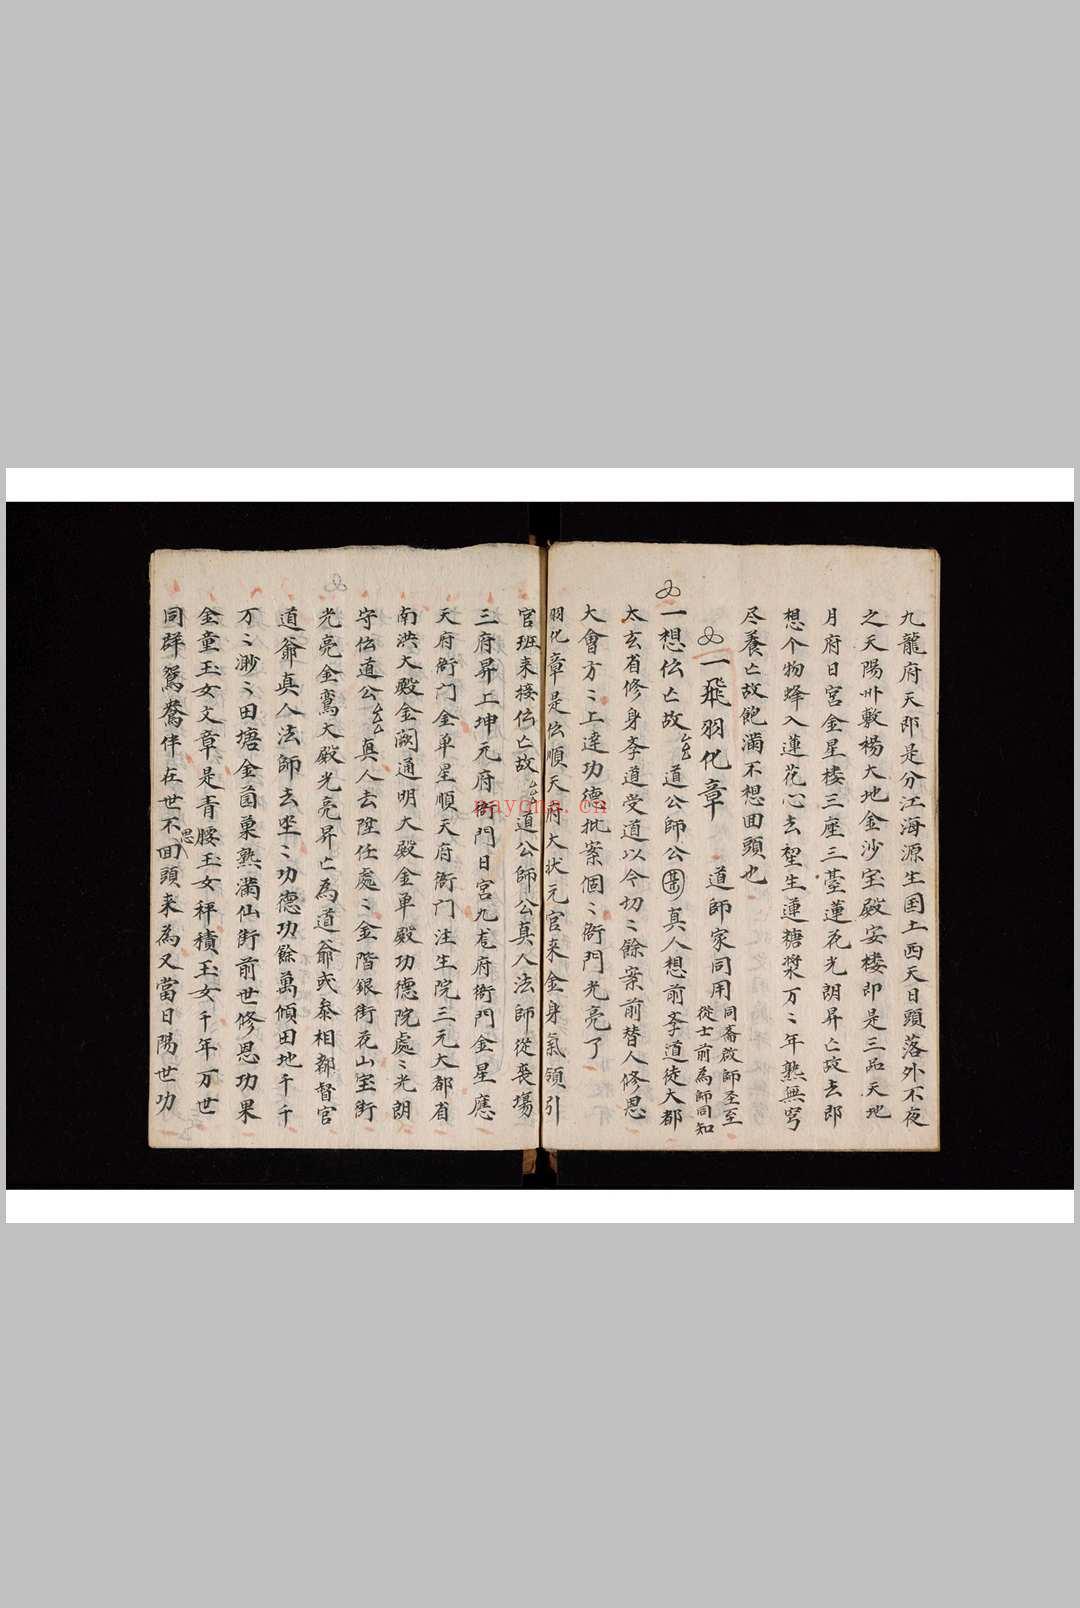 九龍府天郎是分江海源生国土西天日頭落外不夜
之天陽卅敷楊大地金沙宝殿安楼即是三品天地
月府日宮金星楼三座三䑓蓮花光朗昇亡故去郎
想个物蜂入蓮花心去犁生蓮糖漿万〻年熟無穷
尽養亡故飽滿不想回頭也
一飛羽化章 道師家同用
同齋啟師圣至
從士前為師同知
一想伝亡故 道公師公 真人想前李道徒大都
太玄省修身李道受道以今切〻餘案前替人修恩
大會方〻上達功德批案個〻衙門光亮了
羽化章是伝順天府大状元官来金身氣領引
官班来接伝亡故 道公師公真人法師從喪場
三府昇上坤元府衙門日宮九尨府衙門金星應
天府衙门金单星順天府衙门注生院三元大都省
南洪大殿金闕通明大殿金单殿功德院處〻光朗
守伝道公 真人去陞任處〻金階銀街花山宝街
光亮金鸞大殿光亮昇亡為道爺或泰相都督官
道爺真人法師去坐〻功德功餘萬傾田地千千
万〻渺〻田塘金菌菓熟滿仙街前世修恩功果
金童玉女文章是青腰玉女秤積玉女千年万世
同群鴛鴦伴在世不思回頭来為又當日陽世功
nayona.cn